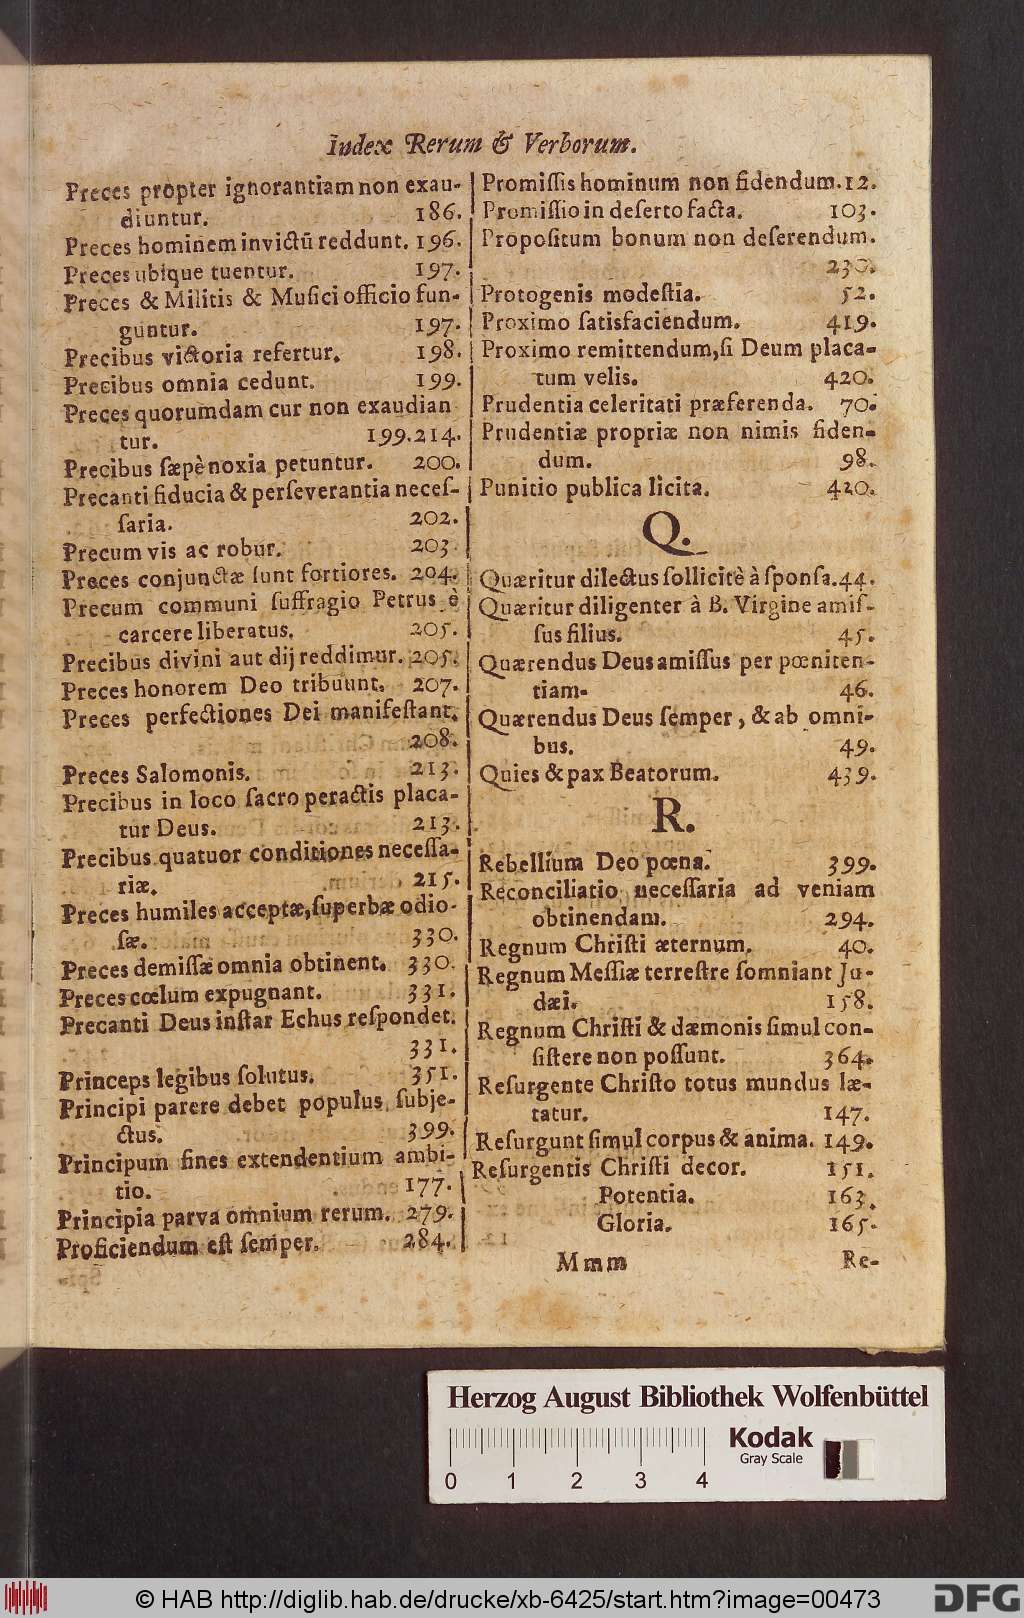 Index Rerum & Verborum.
Preces propter ignorantiam non exau-
diuntur. 186.
Preces hominem invictũ reddunt. 196.
Preces ubique tuentur. 197.
Preces & Militis & Musici officio fun-
guntur. 197.
Precibus victoria refertur. 198.
Precibus omnia cedunt. 199.
Preces quorumdam cur non exaudian
tur. 199.214.
Precibus sæpè noxia petuntur. 200.
Precanti fiducia & perseverantia neces-
saria. 202.
Precum vis ac robur. 203.
Preces conjunctæ sunt fortiores. 204.
Precum communi suffragio Petrus è
carcere liberatus. 205.
Precibus divini aut dij reddimur. 205.
Preces honorem Deo tribuunt. 207.
Preces perfectiones Dei manifestant.
208.
Preces Salomonis. 213.
Precibus in loco sacro peractis placa-
tur Deus. 213.
Precibus quatuor conditiones necessa-
riæ. 215.
Preces humiles acceptæ, superbæ odio-
sæ. 330.
Preces demissæ omnia obtinent. 330.
Preces cœlum expugnant. 331.
Precanti Deus instar Echus respondet.
331.
Princeps legibus solutus. 351.
Principi parere debet populus subje-
ctus. 399.
Principum fines extendentium ambi-
tio. 177.
Principia parva omnium rerum. 279.
Proficiendum est semper. 284.
Promissis hominum non fidendum. 12.
Promissio in deserto facta. 103.
Propositum bonum non deserendum.
230.
Protogenis modestia. 52.
Proximo satisfaciendum. 419.
Proximo remittendum, si Deum placa-
tum velis. 420.
Prudentia celeritati præferenda. 70.
Prudentiæ propriæ non nimis fiden-
dum. 98.
Punitio publica licita. 420.
Q.
Quæritur dilectus sollicitè à sponsa. 44.
Quæritur diligenter à B. Virgine amis-
sus filius. 45.
Quærendus Deus amissus per pœniten-
tiam. 46.
Quærendus Deus semper, & ab omni-
bus. 49.
Quies & pax Beatorum. 439.
R.
Rebellium Deo pœna. 399.
Reconciliatio necessaria ad veniam
obtinendam. 294.
Regnum Christi æternum. 40.
Regnum Messiæ terrestre somniant Ju-
dæi. 158.
Regnum Christi & dæmonis simul con-
sistere non possunt. 364.
Resurgente Christo totus mundus læ-
tatur. 147.
Resurgunt simul corpus & anima. 149.
Resurgentis Christi decor. 151.
Potentia. 163.
Gloria. 165.
Mmm Re-
Herzog August Bibliothek Wolfenbüttel
0 1 2 3 4
Kodak
Gray Scale
© HAB http://diglib.hab.de/drucke/xb-6425/start.htm?image=00473
DFG